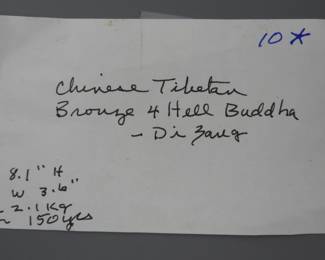 10*
Chinese Tibetan
Bronze 4 Hell Buddha
- Di Zang
8.1" H
W 3.6"
2.1 Kg
150 yrs